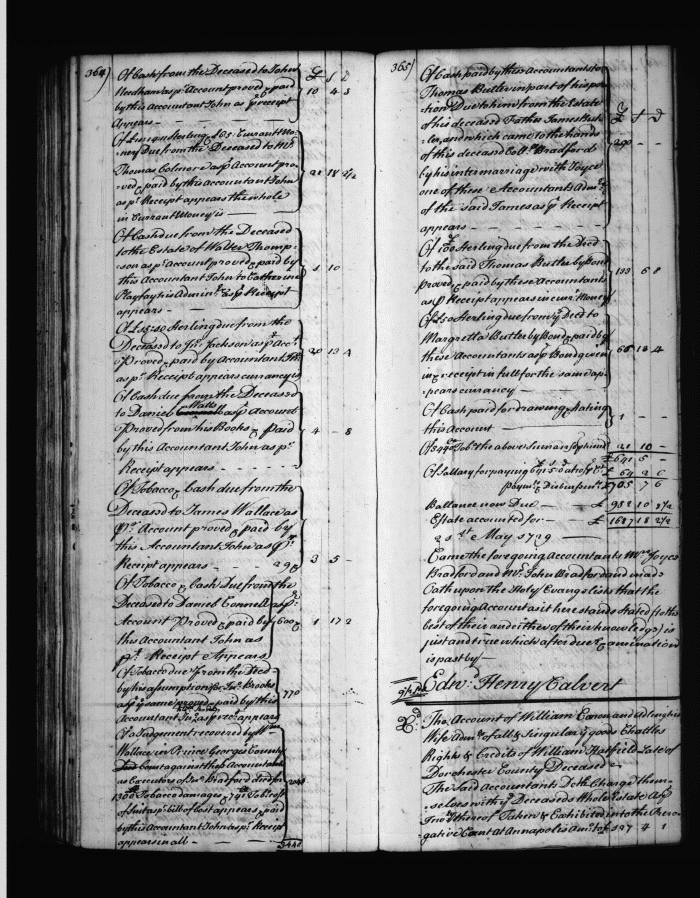 364)
£ s d
Of Cash from the Deceased to John
Needham as p Account proved & paid
by this Accountant John as p receipt
Appears - - - 10 4 3
Of Sterling £ 105 Currant Mo-
ney Due from the Deceased to Mr
Thomas Colmore as p Account pro-
ved & paid by this Accountant John
as pr Receipt appears the whole
in Currant Money is - 21 18 2/4
Of Cash due from the Deceased
to the Estate of Walter Thomp-
son as pr Account proved & paid by
this Accountant John to Catherine
Playfay his Adminx as p Receipt
appears - - - 1 10
Of £15:10 Sterling due from the
Deceased to Jno Jackson as p Acct
Proved & paid by Accountant
as pr Receipt appears currancy is 20 13 4
Of Cash due from the Deceased
to Daniel Walls as p Account
Proved from his Books & Paid
by this Accountant John as pr
Receipt appears - - - - - 4 - 8
Of Tobacco & Cash due from the
Deceased to James Wallace as
pr Account proved & paid by
this Accountant John as p
Receipt appears - 298 3 5 -
Of Tobacco & Cash Due from the
Deceased to Daniel Connell as p
Account Proved & paid by 600 1 17 2
this Accountant John as
pr Receipt Appears
Of Tobacco due from the Dec'd
by his assumption for Jno Brooks
as p same proved & paid by this 770
Accountant Jno as p rect appears
Of a Judgement recovered by Wm
Wallace in Prince Georges County
Court against these Accountants
as Executors of Jno Bradford Dec'd for
1366 Tobacco damages & 741 Tobo cost
of suit as p bill of cost appears & paid
by this Accountant John as pr Receipt
appears in all - - - 3448
365)
£ s d
Of Cash paid by this Accountants to
Thomas Butler in part of his por-
tion Due to him from the Estate
of his deceased Father James But-
ler, and which came to the hands
of this deceased Collo Bradford
by his intermarriage with Joyce
one of these Accountants Admx
of the said James as p Receipt
appears - - - - - 290 - -
Of 100 Sterling due from the Dec'd
to the said Thomas Butler by Bond
proved & paid by these Accountants
as p Receipt appears in curr Money 133 6 8
Of £50 Sterling due from ye Dec'd to
Margretta Butler by Bond & paid by
these Accountants as p Bond given
in & receipt in full for the same ap-
pears currancy - 66 13 4
Of Cash paid for drawing & Stating
this Account - 1 - -
Of Tobo the above Sum 21 10 -
£ 641 5 -
Of Sallary for paying 641:5:0 at 10 p Ct £ 64 2 6
paymts & Disbursmts £ 705 7 6
Ballance now Due - £ 982 10 8 1/2
Estate accounted for - £ 1687 18 2 1/2
21st May 1729 -
Came the foregoing Accountants Mrs Joyce
Bradford and Mr John Bradford and made
Oath upon the Holy Evangelists that the
foregoing Account as it here stands stated (to the
best of their and either of their knowledge) is
just and true which after due Examination
is past by -
Edwd Henry Calvert
The Account of William Canon and
Wife Admx of all & Singular Goods Chattles
Rights & Credits of William Hatfield Late of
Dorchester County Deceased -
The said Accountants Doth Charge them-
selves with ye Deceaseds Whole Estate as p
Invry thereof Taken & Exhibited into the Prero-
gative Court at Annapolis Amo to £ 127 4 1